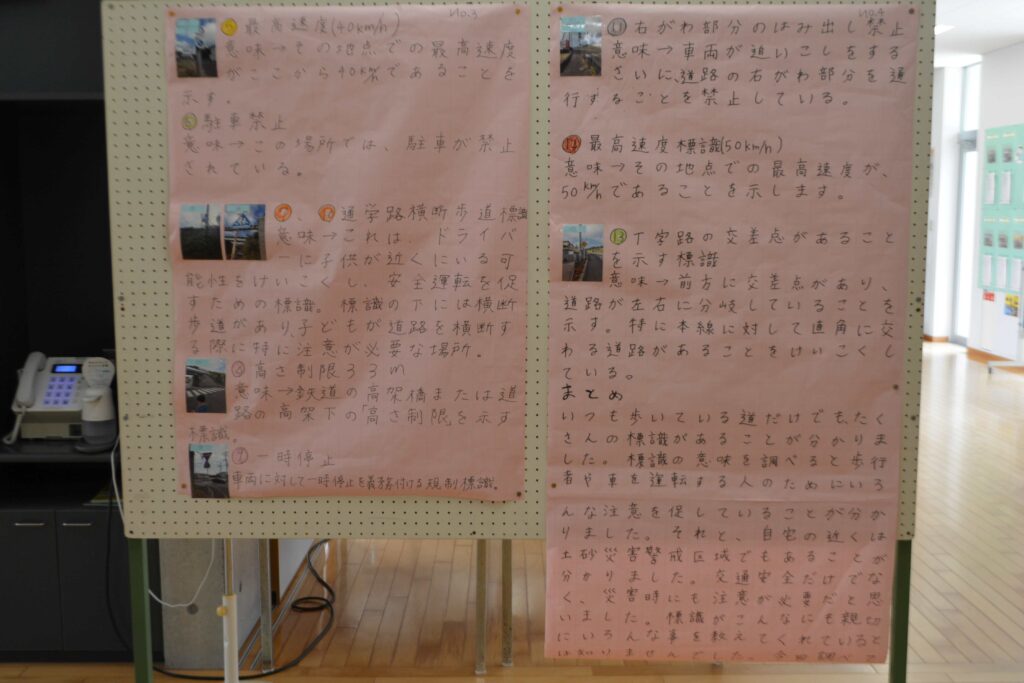 No.3
⑤最高速度(40km/h)
意味→その地点での最高速度
がここから40km/hであることを
示す。
⑧駐車禁止
意味→この場所では、駐車が禁止
されている。
通学路横断歩道標識
意味→これは、ドライバ
ーに子供が近くにいる可
能性をけいこくし、安全運転を促
すための標識。標識の下には横断
歩道があり、子どもが道路を横断す
る際に特に注意が必要な場所。
高さ制限3.3m
意味→鉄道の高架橋または道
路の高架下の「高さ制限」を示す
標識。
⑦一時停止
車両に対して一時停止を義務付ける規制標識。
No.4
右がわ部分のはみ出し禁止
意味→車両が追いこしをする
さいに、道路の右がわ部分を通
行することを禁止している。
⑭最高速度標識(50km/h)
意味→その地点での最高速度が、
50km/hであることを示します。
⑬丁字路の交差点があること
を示す標識
意味→前方に交差点があり、
道路が左右に分岐していることを
示す。特に本線に対して直角に交
わる道路があることをけいこくし
ている。
まとめ
いつも歩いている道だけでも、たく
さんの標識があることが分かりま
した。標識の意味を調べると歩行
者や車を運転する人のためにいろ
んな注意を促していることが分か
りました。それと、自宅の近くは
土砂災害警戒区域でもあることが
分かりました。交通安全だけでな
く、災害時にも注意が必要だと思
いました。標識がこんなにも親切
にいろんな事を教えてくれていると
は知りませんでした。今回調べて